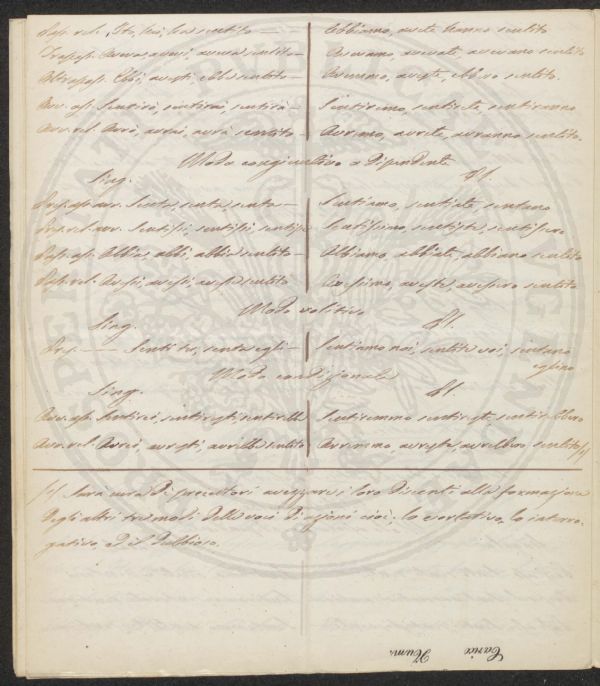 Pass. rel. Ho, hai, ha sentito — Abbiamo, avete, hanno sentito
Trapass. Aveva, avevi, aveva sentito — Avevamo, avevate, avevano sentito
Ebbi, avesti, ebbe sentito — Avemmo, aveste, ebbero sentito.
Avv. ass. Sentirò, sentirai, sentirà — Sentiremo, sentirete, sentiranno
Avv. rel. Avrò, avrai, avrà sentito — Avremo, avrete, avranno sentito.
Modo congiuntivo o Dipendente
Sing. Pl.
Senta, senta, senta — Sentiamo, sentiate, sentano
Sentissi, sentissi, sentisse Sentissimo, sentiste, sentissero
Pass. ass. Abbia, abbi, abbia sentito — Abbiamo, abbiate, abbiano sentito
Pass. rel. Avessi, avessi, avesse sentito Avessimo, aveste, avessero sentito
Modo volitivo
Sing. Pl.
Pres. — Senti tu, senta egli — Sentiamo noi, sentite voi, sentano
eglino
Modo condizionale
Sing. Pl.
Avv. ass. Sentirei, sentiresti, sentirebbe Sentiremmo sentireste, sentirebbero
Avv. rel. Avrei, avresti, avrebbe sentito Avremmo, avreste, avrebbero sentito
Sarà cura di precettori avvezzare i loro discenti alla formazione
degli altri tre modi delle voci di azioni cioè: lo esortativo, lo interro-
gativo, ed il dubbioso.
PROSPERITATI PUBLICAE AUGENDAE